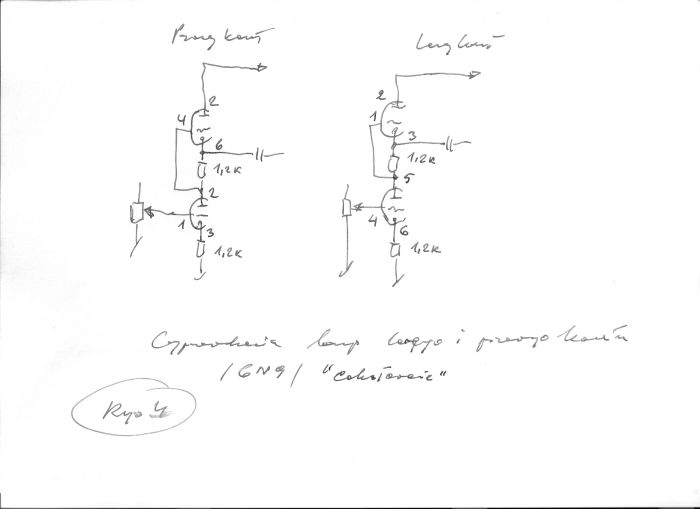 Prawy kanał
Lewy kanał
2
4
6
1,2k
2
1
3
1,2k
2
1
3
1,2k
5
4
6
1,2k
Wyprowadzenia lamp lewego i prawego kanału
/6N9/ "Cokołowanie"
Rys 4